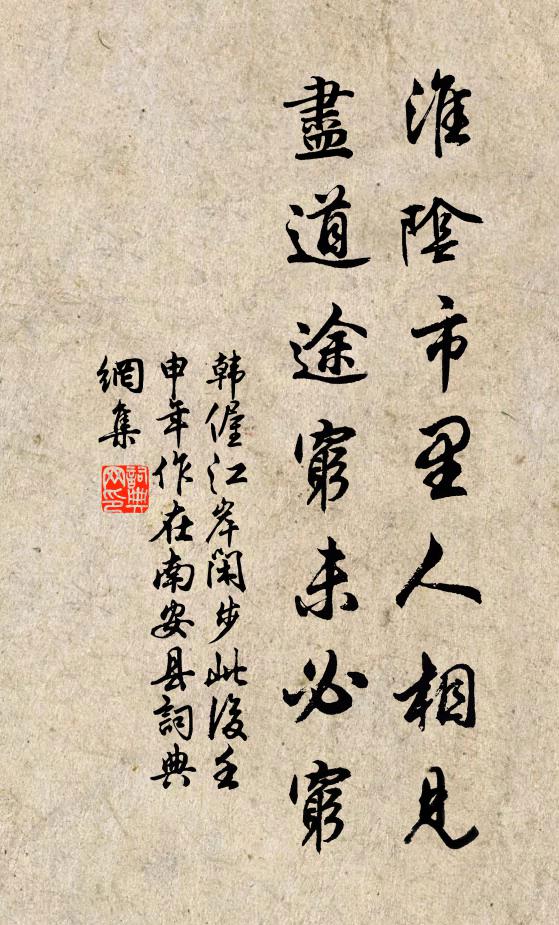 淮陰市里人相見
盡道途窮未必窮
韩偓江岸閑步此後壬
申年作在南安县詞典
網集
詞典
网印